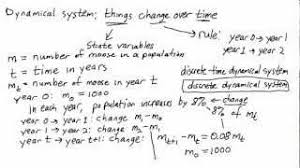 Dynamical system: things change over time
rule: year 0 → year 1
year 1 → year 2
State variables
m = number of moose in a population
t = time in years
m_t = number of moose in year t
discrete time dynamical system
discrete dynamical system
year 0: m_0 = 1000
In each year, population increase by 8% ← change
8% of m_t
year 0 → year 1: change m_1 - m_0
year 1 → year 2: change m_2 - m_1
year t → year t+1: change: m_{t+1} - m_t = 0.08 m_t
m_0 = 1000